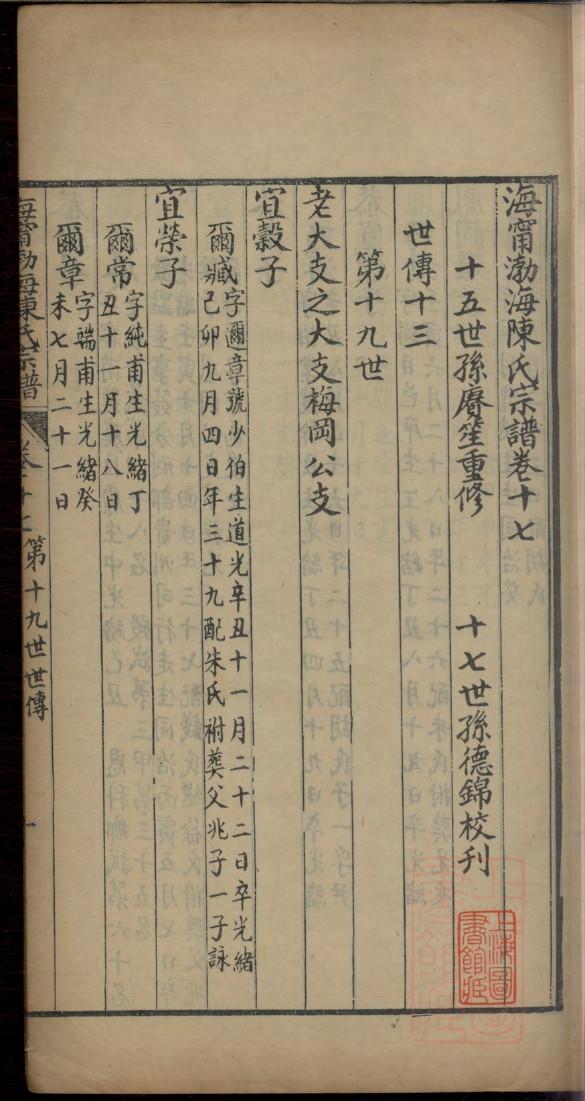 海甯渤海陳氏宗譜卷十七
十五世孫賡笙重修　十七世孫德錦校刊
世傳十三
第十九世
老大支之大支梅岡公支
宜穀子
爾臧字邇章號少伯生道光辛丑十一月二十二日卒光緒
己卯九月四日年三十九配朱氏祔葬父兆子一子詠
宜榮子
爾常字純甫生光緒丁
丑十一月十八日
爾章字端甫生光緒癸
未七月二十一日
海甯渤海陳氏宗譜　卷十七　第十九世世傳　一
上海圖
書館臧